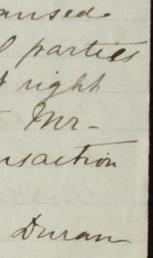 aused
l parties
t right
Mr-
nsaction
Duran